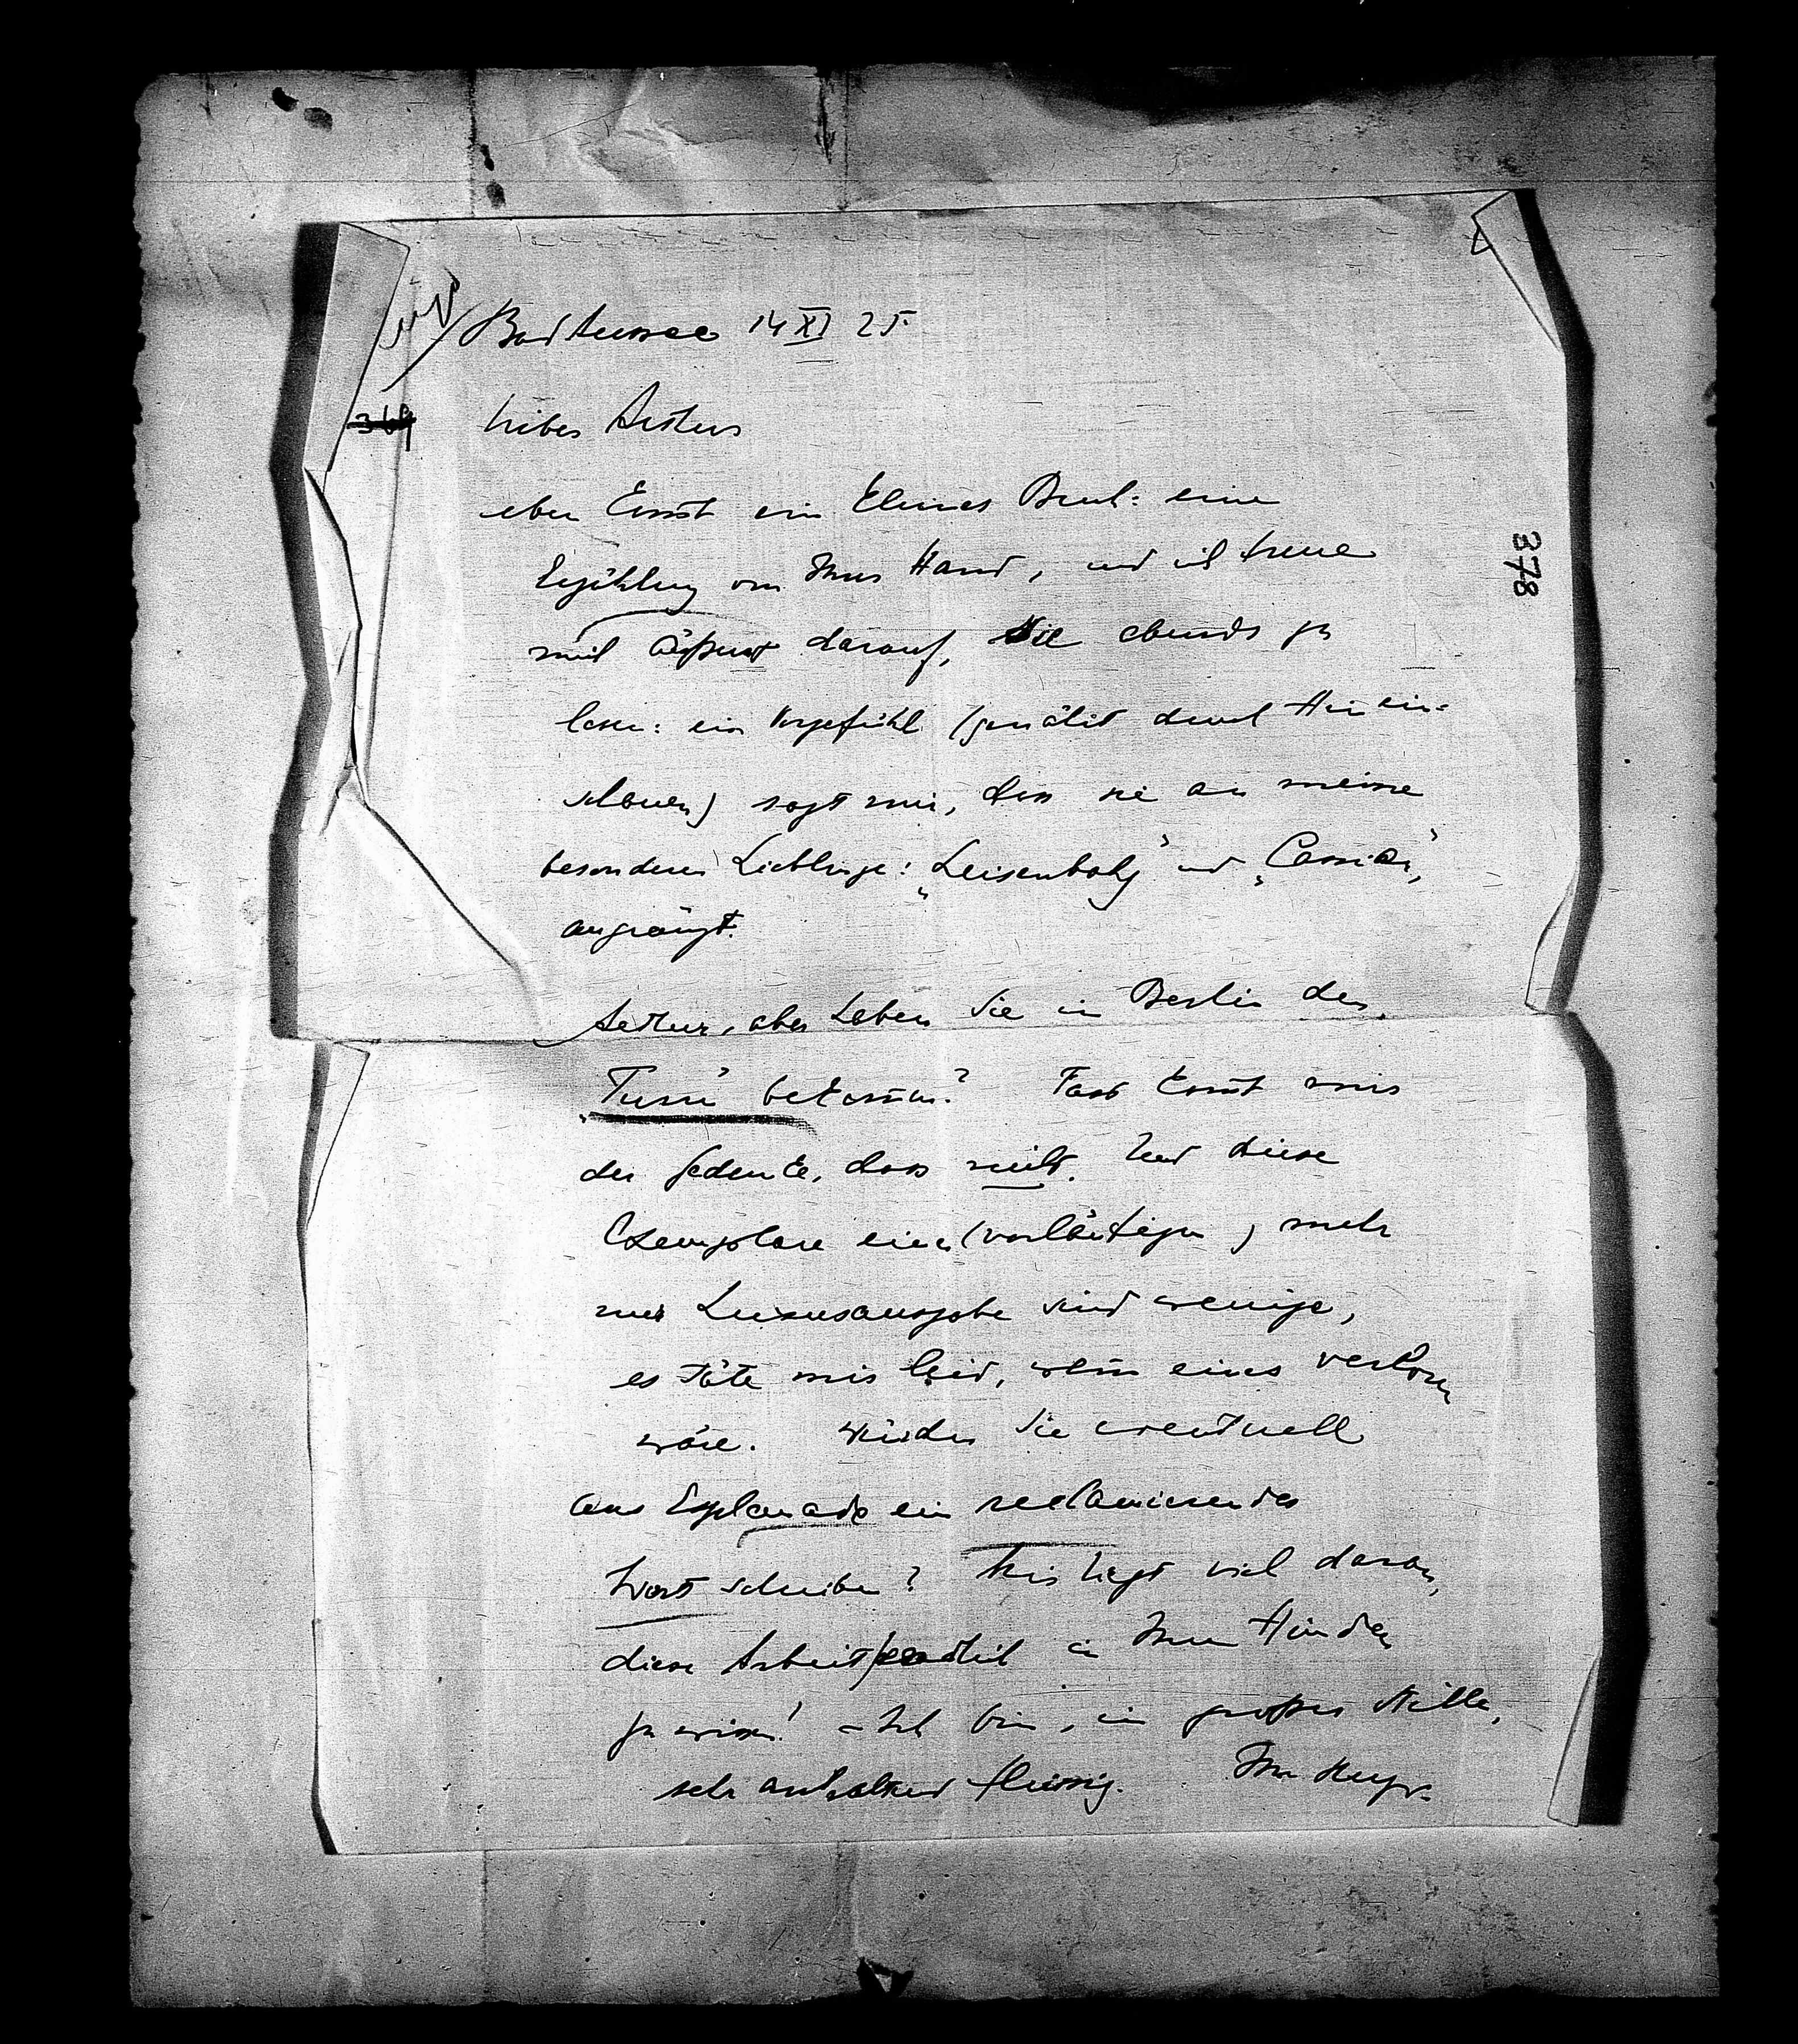 Bad Aussee 14 XI 25.
369
lieber Arthur
eben kommt ein kleines Buch: eine
378
Erzählung von Ihrer Hand, und ich freue
mich äußerst darauf, sie abends zu
lesen: ein Vorgefühl (genährt durch Hinein-
schauen) sagt mir, dass sie an meine
besonderen Lieblinge: „Leisenbohg" und „Cassian",
angränzt.
Arthur, aber haben Sie in Berlin den
„Turm" bekommen? Fast kommt mir
der Gedanke, dass nicht. Und diese
Exemplare einer (vorläufigen) mehr
nur Luxusausgabe sind wenige,
es täte mir leid, wenn eines verloren
wäre. Würden Sie eventuell
ans Esplanade ein reclamierendes
Wort schreiben? Mir liegt viel daran,
diese Arbeit in Ihren Händen
zu wissen! – Ich bin, in großer Stille,
sehr anhaltend fleissig. Ihr Hugo.